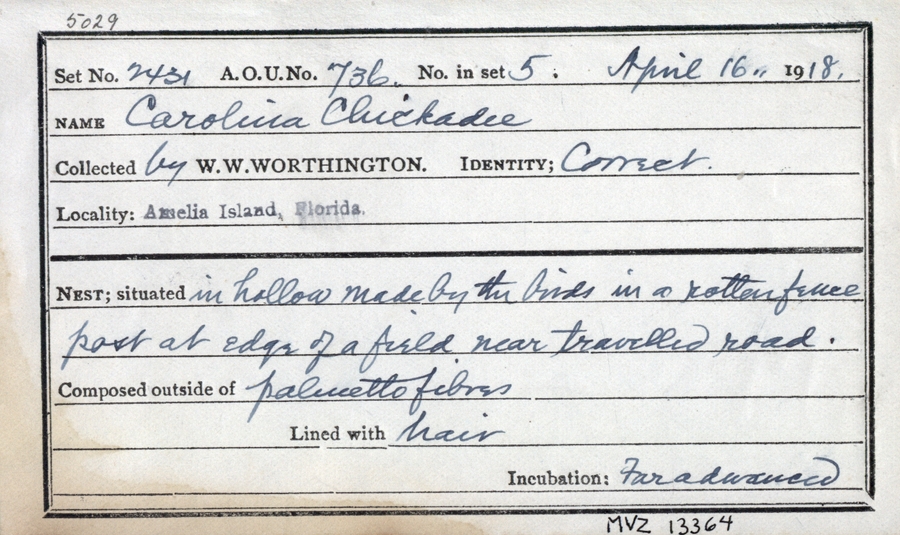 5029
Set No. 2431 A.O.U.No. 736. No. in set 5. April 16., 1918.
NAME Carolina Chickadee
Collected by W.W.WORTHINGTON. IDENTITY; Correct.
Locality: Amelia Island, Florida.
NEST; situated in hollow made by the birds in a rotten fence
post at edge of a field near travelled road.
Composed outside of palmetto fibres
Lined with hair
Incubation: Far advanced
MVZ 13364